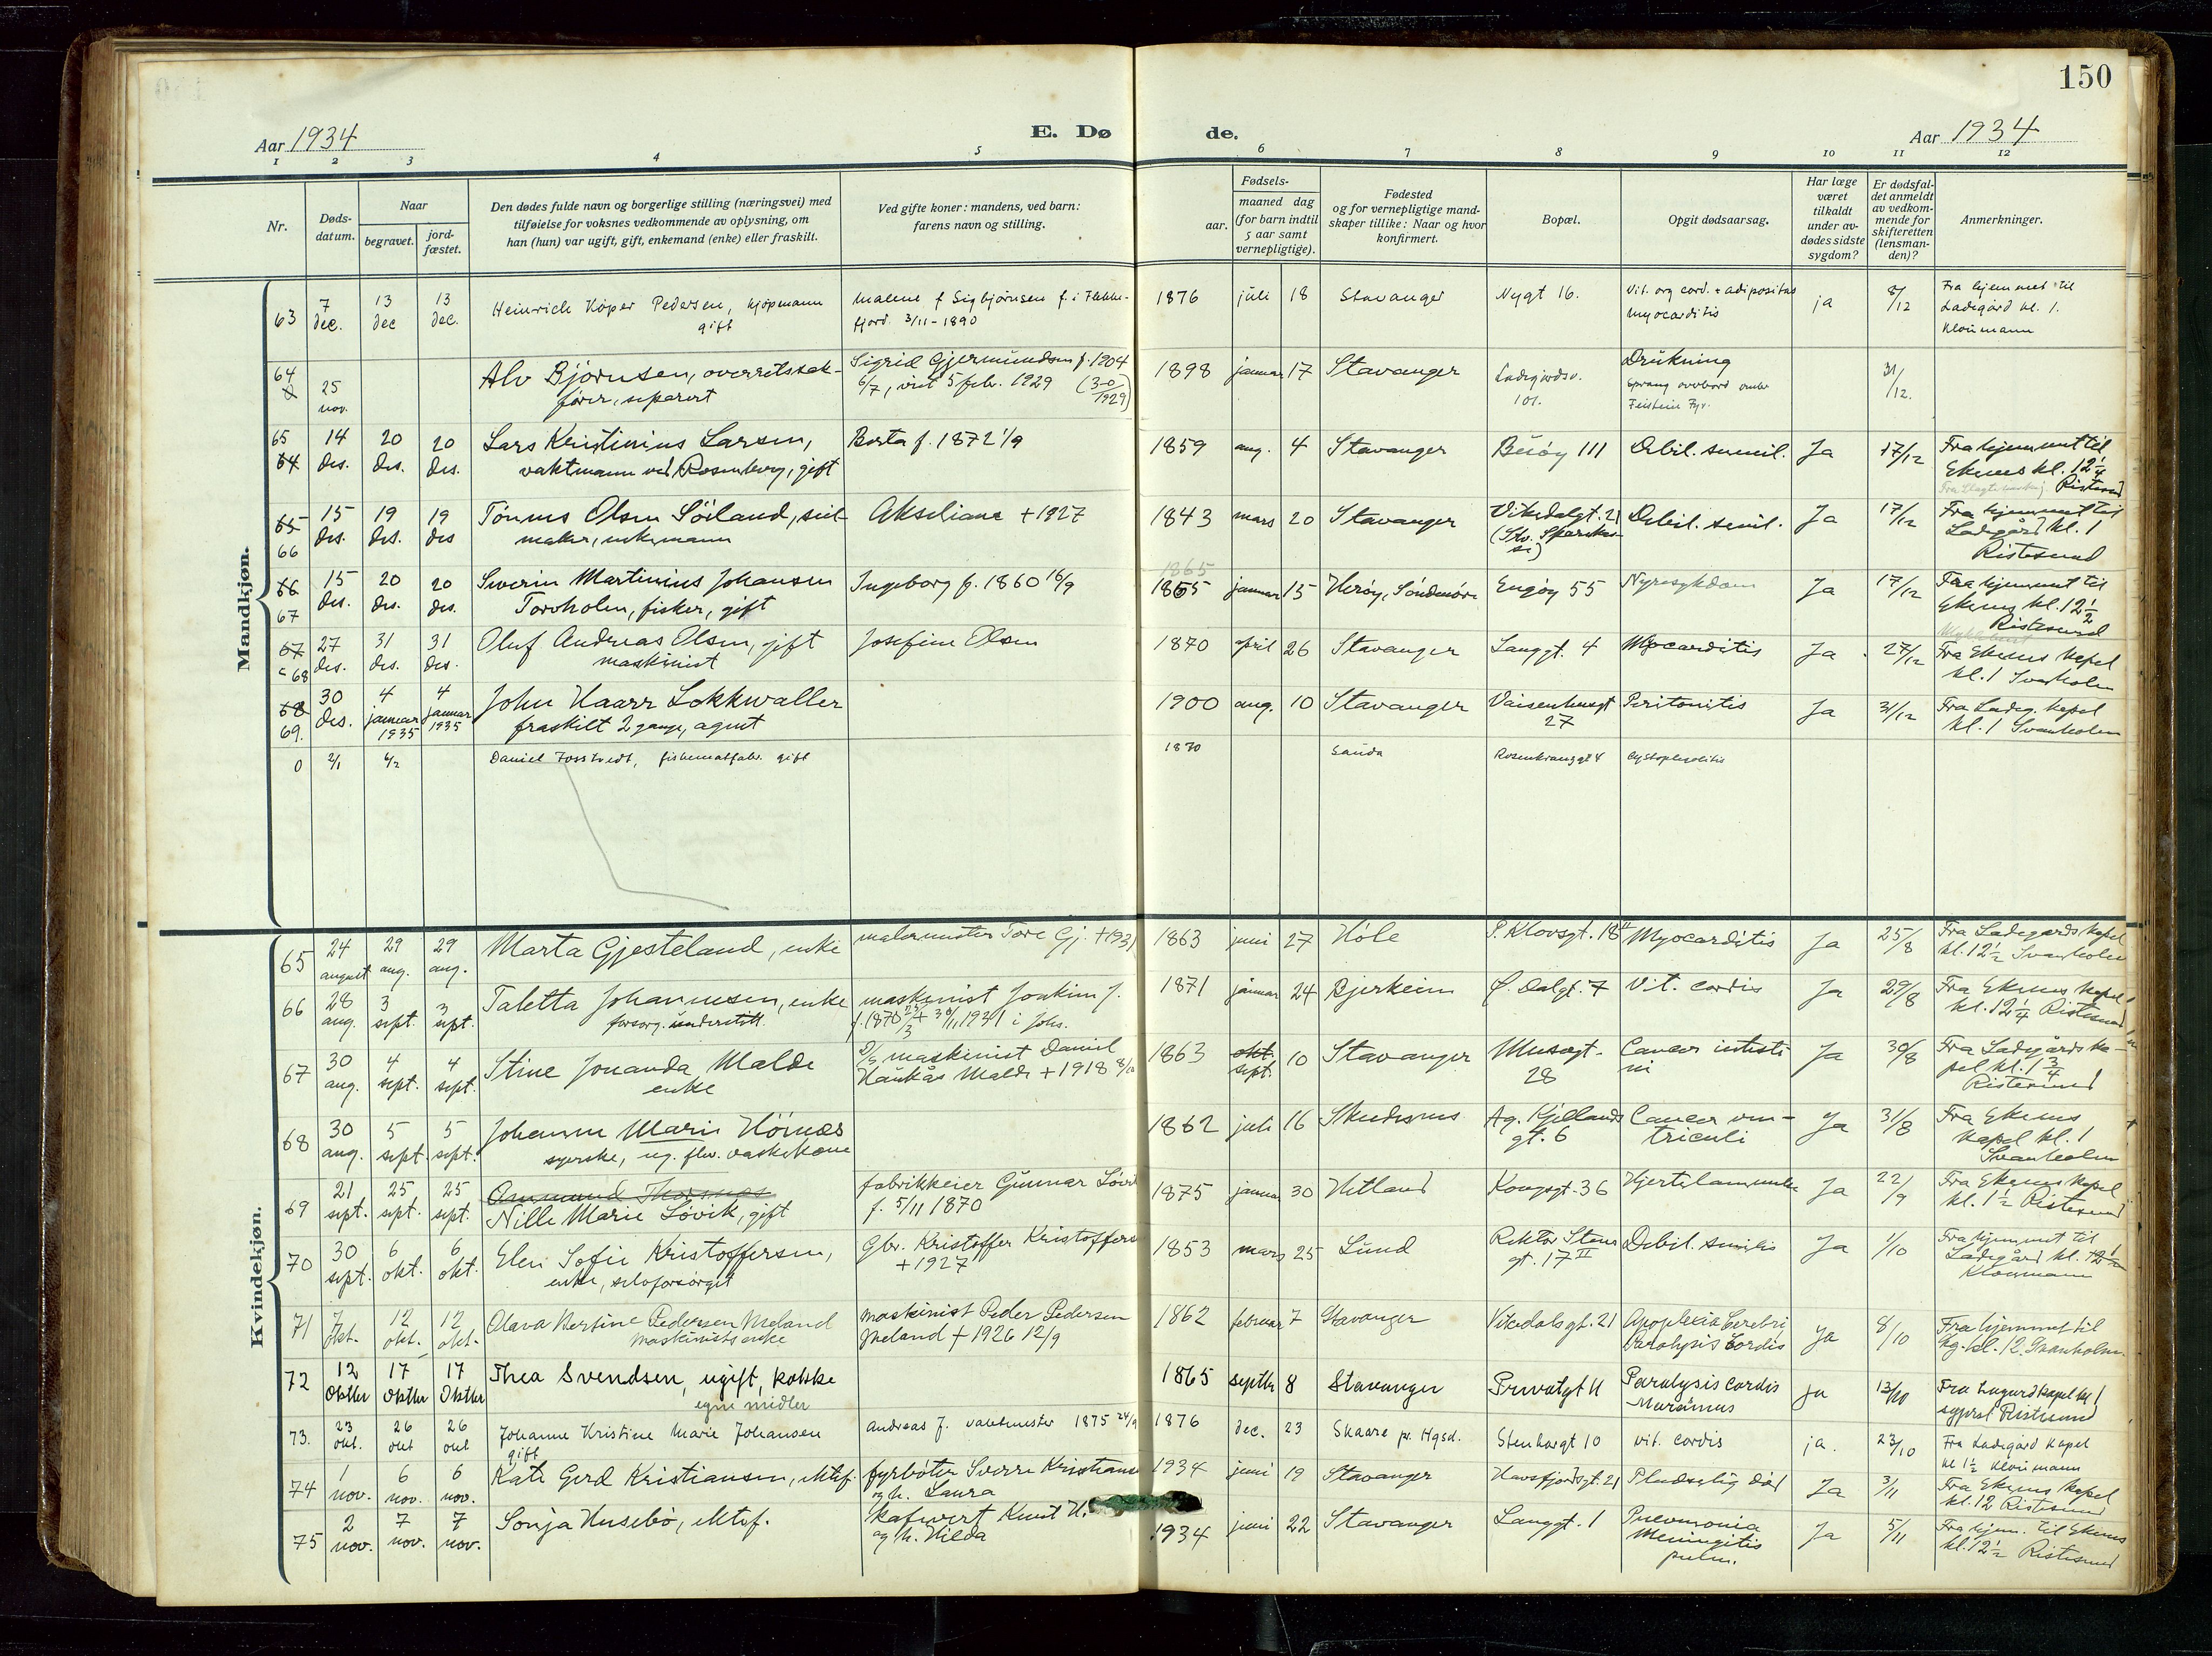 150
Aar 1934
E. Dø
de.
Aar 1934
1 2 3 4 5 6 7 8 9 10 11 12
Nr.
Døds-
datum.
Naar
begravet.
jord-
fæstet.
Den dødes fulde navn og borgerlige stilling (næringsvei) med
tilføielse for voksnes vedkommende av oplysning, om
han (hun) var ugift, gift, enkemand (enke) eller fraskilt.
Ved gifte koner: mandens, ved barn:
farens navn og stilling.
Fødsels-
aar.
maaned dag
(for barn indtil
5 aar samt
vernepligtige).
Fødested
og for vernepligtige mand-
skaper tillike: Naar og hvor
konfirmert.
Bopæl.
Opgit dødsaarsag.
Har læge
været
tilkaldt
under av-
dødes sidste
sygdom?
Er dødsfal-
det anmeldt
av vedkom-
mende for
skifteretten
(lensman-
den)?
Anmerkninger.
Mandkjøn.
63 7 dec. 13 dec 13 dec. Heinrich Köper Pedersen, kjøpmann
gift
Malene f Sigbjørnsen f. i Flekke-
fjord 3/11-1890
1876 juli 18 Stavanger Nygt 16. Vit. org cord. + adipositas
Myocarditis
ja 8/12 Fra hjemmet til
Ladegård kl. 1.
Kloumann
64 25 nov. Alv Bjørnsen, overrettssak-
fører, separert
Sigrid Gjermundsen f. 1904
6/7, viet 5 febr. 1929
1898 januar 17 Stavanger Ladegårdsv.
101.
Drukning
Sprang overbord
Feistein Fyr.
31/12.
65 64 14 des. 20 des. 20 des. Lars Kristinius Larsen,
vaktmann ved Rosenberg, gift
Berta f. 1872 1/9
1859 aug. 4 Stavanger Buøy 111 Debil. senil. Ja 17/12 Fra hjemmet til
Ekenes kl. 12 1/4
Ristesund
65 66 15 des. 19 des. 19 des Tønnes Olsen Søiland, seil-
maker, enkemann
Akseliane + 1927
1843 mars 20 Stavanger Vikedalgt. 21
(Stv. Sparekas-
se)
Debil. senil. Ja 17/12 Fra hjemmet til
Ladegård kl. 1
Ristesund
66 67 15 des. 20 des. 20 des. Severin Martinius Johansen
Torvholen, fisker, gift
Ingeborg f. 1860 16/9
1865
1865 januar 15 Herøy, Søndmøre Engøy 55 Nyresykdom Ja 17/12 Fra hjemmet til
Ekenes kl. 12 1/2
Ristesund
67 68 27 des. 31 des. 31 des. Oluf Andreas Olsen, gift
maskinist
Josefine Olsen
1870 april 26 Stavanger Langgt. 4 Myocarditis Ja 27/12 Fra Ekenes kapel
kl. 1 Svanholm
68 69. 30 des. 4 januar 1935 4 januar 1935 John Haarr Lokkwaller
fraskilt 2 gange, agent
1900 aug. 10 Stavanger Vaisenhusgt
27
Peritonitis Ja 31/12 Fra Ladeg. kapel
kl. 1 Svanholm
0 2/1 6/2 Daniel Fosstvedt, fiskematfabr. gift
1870 Sauda Rosenkranzgt 4
Kvindekjøn.
65 24 august 29 aug. 29 aug. Marta Gjesteland, enke
malermester Tore Gj. + 1931
1863 juni 27 Høle P. Klovsgt. 18 II Myocarditis Ja 25/8 Fra Ladegårds kapel
kl. 12 1/2 Svanholm
66 28 aug. 3 sept. 3 sept. Taletta Johannesen, enke
forsorg. understøtt.
maskinist Joakim J.
f. 1870 25/3 + 30/11 1931 i Johs.
1871 januar 24 Bjerkeim Ø. Dalgt. 7 Vit. cordis Ja 29/8 Fra Ekenes kapel
kl. 12 1/4 Ristesund
67 30 aug. 4 sept. 4 sept. Stine Jonanda Malde
enke
maskinist Daniel
Haukås Malde + 1918 8/10
1863 okt. sept. 10 Stavanger Musegt.
28
Cancer intesti
ni
Ja 30/8 Fra Ladegårds ka-
pel kl. 1 3/4
Ristesund
68 30 aug. 5 sept. 5 sept. Johanne Marie Hörnæs
syerske, ug. fhv. vaskekone
1862 juli 16 Skudesnes Ag. Kjellands
gt. 6
Cancer ven-
triculi
Ja 31/8 Fra Ekenes
kapel kl. 1
Svanholm
69 21 sept. 25 sept. 25 sept. Ommund Thorsnes
Nille Marie Løvik, gift
fabrikkeier Gunnar Løvik
f. 5/11 1870
1875 januar 30 Hetland Kongsgt. 36 Hjertelammelse Ja 22/9 Fra Ekenes kapel
kl. 1 1/2 Ristesund
70 30 sept. 6 okt. 6 okt. Elen Sofie Kristoffersen,
enke, selvforsørget
Gbr. Kristoffer Kristoffers
+ 1927
1853 mars 25 Lund Rektor Stens
gt. 17 II
Debil. senilis Ja 1/10 Fra hjemmet til
Ladegård kl. 12 1/2
Kloumann
71 7 okt. 12 okt. 12 okt. Olava Bertine Pedersen Meland
maskinists enke
maskinist Peder Pedersen
Meland + 1926 12/9
1862 februar 7 Stavanger Vikedalsgt. 21 Apoplexia Cerebri
Paralysis Cordis
Ja 8/10 Fra hjemmet til
kl. 12. Svanholm.
72 12 Oktbr 17 Oktbr 17 Oktbr Thea Svendsen, ugift, kokke
egne midler
1865 septbr 8 Stavanger Privatgt 11 Paralysis cordis
Marasmus
Ja 13/10 Fra Lagård kapel kl 1
Ristesund
73. 23 okt. 26 okt 26 okt Johanne Kristine Marie Johansen
gift
Andreas J. 1875 24/9
1876 dec. 23 Skaare pr. Hgsd. Stenhargt 10 Vit. cordis ja. 23/10 Fra Ladegård kapel
kl 1 1/2 Kloumann
74 1 nov. 6 nov. 6 nov. Kate Gerd Kristiansen, ektef.
fyrbøter Sverre Kristianse
og h. Laura
1934 juni 19 Stavanger Havsfjordsgt. 21 Pludselig død Ja 3/11 Fra Ekenes kapel
kl. 12 Ristesund
75 2 nov. 7 nov. 7 nov. Sonja Husebø, ektef.
kafevert Knut H.
og h. Hilda
1934 juni 22 Stavanger Langgt. 1 Pneumonia
Meningitis
Ja 5/11 Fra hjem. til Ekenes
kl. 12 1/2 Ristesund